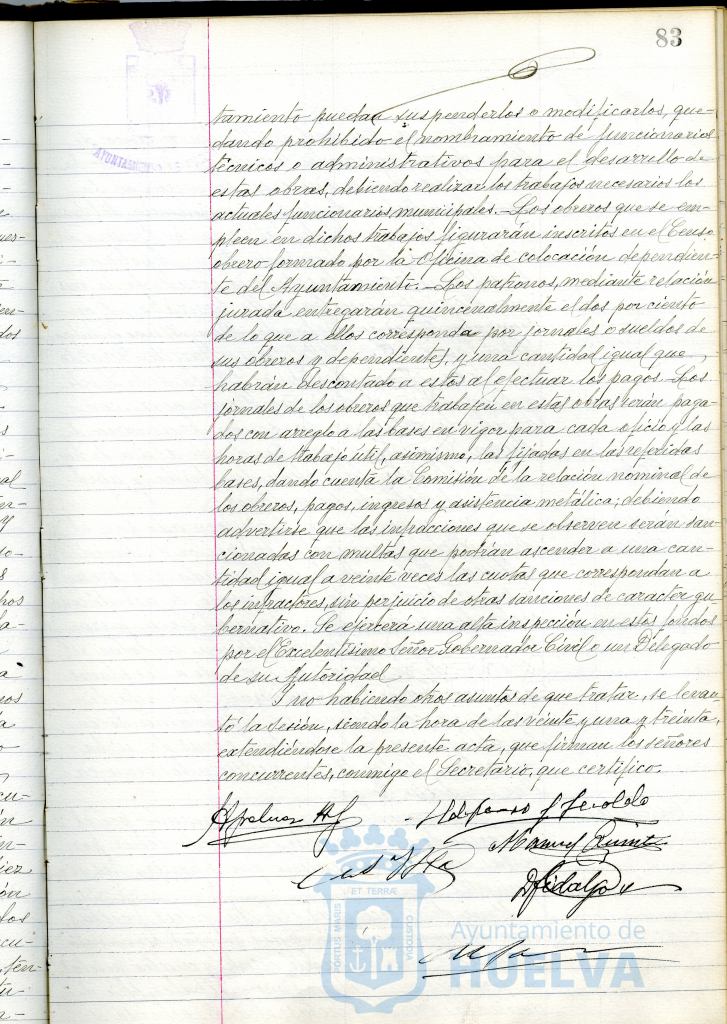 83
tamiento puedan suspenderlos o modificarlos, que-
dando prohibido el nombramiento de funcionarios
técnicos o administrativos para el desarrollo de
estas obras, debiendo realizar los trabajos necesarios los
actuales funcionarios municipales.- Los obreros que se em-
pleen en dichos trabajos figurarán inscritos en el Censo
obrero formado por la Oficina de colocación dependien-
te del Ayuntamiento.- Los patronos, mediante relación
jurada entregarán quincenalmente el dos por ciento
de lo que a ellos corresponda por jornales o sueldos de
sus obreros y dependientes, y una cantidad igual que
habrán descontado a estos al efectuar los pagos. Los
jornales de los obreros que trabajen en estas obras serán paga-
dos con arreglo a las bases en vigor para cada oficio y las
horas de trabajo util, asimismo, las fijadas en las referidas
bases, dando cuenta la Comisión de la relación nominal de
los obreros, pagos, ingresos y asistencia metálica; debiendo
advertirse que las infracciones que se observen serán san-
cionadas con multas que podrán ascender a una can-
tidad igual a veinte veces las cuotas que correspondan a
los infractores, sin perjuicio de otras sanciones de caracter gu-
bernativo. Se ejercerá una alta inspección en estos fondos
por el Excelentísimo Señor Gobernador Civil o un Delegado
de su Autoridad
Y no habiendo otros asuntos de que tratar, se levan
tó la sesión, siendo la hora de las veinte y una y treinta,
extendiéndose la presente acta, que firman los señores
concurrentes, conmigo el Secretario, que certifico.
Manuel
D. Hidalgo
PORTUS MARIS ET TERRÆ CUSTODIA
Ayuntamiento de
HUELVA